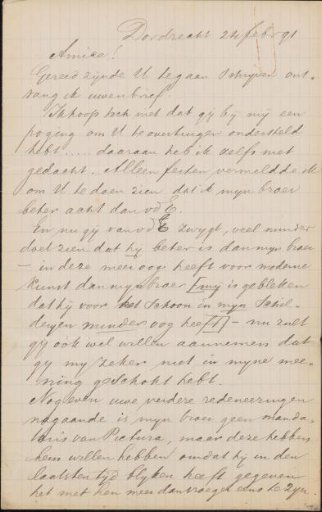 Dordrecht 24 febr 91
Amice!
Gereed zijnde U te gaan schrijven ont-
vang ik uwen brief.
Ik hoop toch niet dat gij bij mij een
poging om U te overtuigen ondersteld
hebt..... daaraan heb ik zelfs niet
gedacht. Alleen feiten vermeldde ik
om U te doen zien dat ik mijn broer
beter acht dan vd E.
En nu gij van vd E zwijgt, veel minder
doet zien dat hij beter is dan mijn broer
— in deze meer oog heeft voor moderne
kunst dan mijn broer (mij is gebleken
dat hij voor het schoon in mijn schil-
derijen minder oog heeft) — nu zult
gij ook wel willen aannemen dat
gij mij zeker niet in mijne mee-
ning geschokt hebt.
Nog even uwe verdere redeneeringen
nagaande is mijn broer geen manda-
taris van Pictura, maar deze hebben
hem willen hebben omdat hij in den
laatsten tijd blijken heeft gegeven
het met hen meer dan vroeger eens te zijn